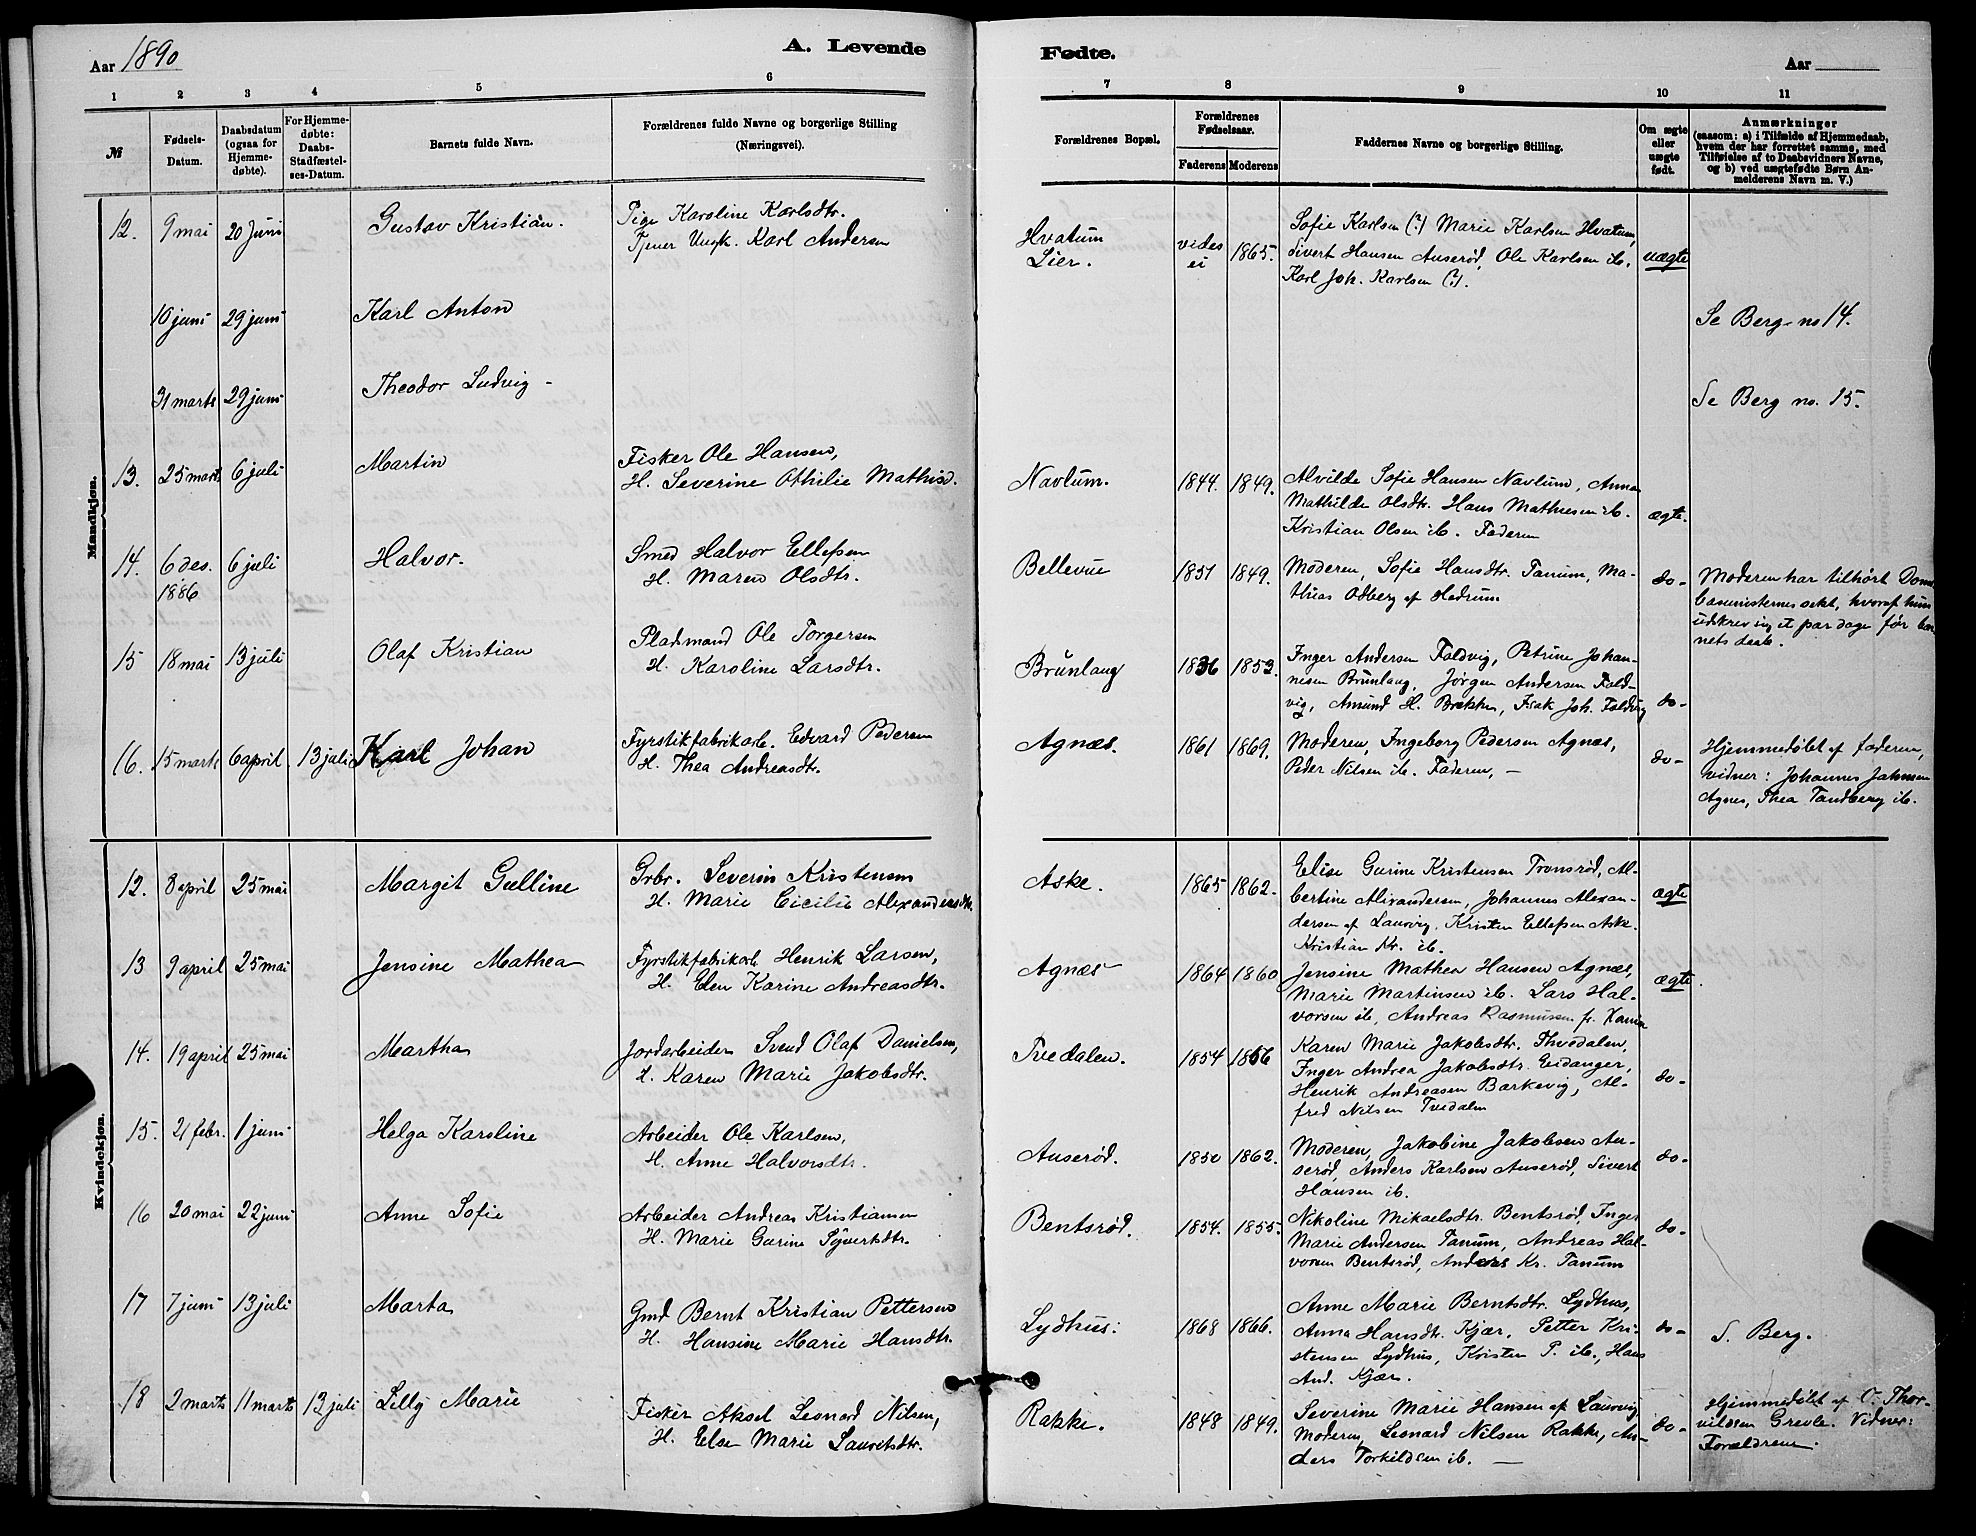 Aar 1890
A. Levende
Fødte.
Aar
1 2 3 4 5 6 7 8 9 10 11
№
Fødsels-
Datum.
Daabsdatum
(ogsaa for
Hjemme-
døbte).
For Hjemme-
døbte:
Daabs-
Stadfæstel-
ses-Datum.
Barnets fulde Navn.
Forældrenes fulde Navne og borgerlige Stilling
(Næringsvei).
Forældrenes Bopæl.
Forældrenes
Fødselsaar.
Faderens Moderens
Faddernes Navne og borgerlige Stilling.
Om ægte
eller
uægte
født.
Anmærkninger
(saasom: a) i Tilfælde af Hjemmedaab,
hvem der har forrettet samme, med
Tilføielse af to Daabsvidners Navne,
og b) ved uægtefødte Børn An-
melderens Navn m. V.)
Mandkjøn.
12. 9 mai 20 Juni
Gustav Kristian.
Pige Karoline Karlsdtr.
Tjener Ungk. Karl Andersen
Hvatum
Lier.
vides
ei
1865.
Sofie Karlsen (?) Marie Karlsen Hvatum,
Sivert Hansen Auserød, Ole Karlsen ib.
Karl Joh. Karlsen (?).
uægte
10 juni 29 juni
Karl Anton
Se Berg no 14.
31 marts 29 juni
Theodor Ludvig -
Se Berg no. 15.
13. 25 marts 6 juli
Martin
Fisker Ole Hansen,
H. Severine Othilie Mathisd.
Navlum.
1844. 1849.
Alvilde Sofie Hansen Navlum, Anna
Mathilde Olsdtr. Hans Mathiesen ib.
Kristian Olsen ib. Faderen
ægte.
14. 6 des.
1886
6 juli
Halvor.
Smed Halvor Ellefsen
H. Maren Olsdtr.
Bellevue
1851 1849.
Moderen, Sofie Hansdtr. Tanum, Ma-
thias Odberg af Hedrum
do-
Moderen har tilhørt
sekt, hvoraf hun
udskrev sig et par dage før bar-
nets daab.
15 18 mai 13 juli
Olaf Kristian
Pladsmand Ole Torgersen
H. Karoline Larsdtr.
Brunlaug
1836 1853.
Inger Andersen Foldvig, Petrine Johan-
nesen Brunlaug, Jørgen Andersen Fold-
vig, Amund H. Brekke, Isak Joh. Foldvig
do-
16. 15 marts 6 april 13 juli
Karl Johan
Fyrstikfabrikarb. Edvard Pedersen
H. Thea Andreasdtr.
Agnæs.
1861 1869.
Moderen, Ingeborg Pedersen Agnæs,
Peder Nilsen ib. Faderen, —
do-
Hjemmedøbt af faderen,
vidner: Johannes Jahnsen
Agnes, Thea Tandberg ib.
Kvindekjøn.
12. 8 april 25 mai
Margit Gulline
Grbr. Severin Kristensen
H. Marie Cicilie Alexandersdtr.
Aske.
1865 1862.
Elise Gurine Kristensen Tronsrød, Al-
bertine Alexandersen, Johannes Alexan-
dersen af Laurvig, Kristen Ellefsen Aske.
Kristian Kr. ib.
ægte
13 9 april 25 mai
Jensine Mathea
Fyrstikfabrikarb. Henrik Larsen,
H. Elen Karine Andreasdtr.
Agnæs
1864 1860
Jensine Mathea Hansen Agnæs,
Marie Martinsen ib. Lars Hal-
vorsen ib, Andreas Rasmussen fr.
ægte.
14. 19 april 25 mai
Martha
Jordarbeider Svend Olaf Danielsen,
H. Karen Marie Jakobsdtr.
Tvedalen.
1854 1856
Karen Marie Jakobsdtr. Thvedalen,
Inger Andrea Jakobsdtr. Eidanger,
Henrik Andreasen Barkevig, Al-
fred Nilsen Tvedalen
do-
15. 21 febr. 1 juni
Helga Karoline
Arbeider Ole Karlsen,
H. Anne Halvorsdtr.
Auserød.
1850 1862.
Moderen, Jakobine Jakobsen Au-
serød, Anders Karlsen Auserød, Sivert
Hansen ib.
do-
16 20 mai 22 juni
Anne Sofie
Arbeider Andreas Kristiansen
H. Marie Gurine Syvertsdtr.
Bentsrød.
1854. 1855.
Nikoline Mikaelsdtr. Bentsrød, Inger
Marie Andersen Tanum, Andreas Hal-
vorsen Bentsrød, Anders Kr. Tanum
do-
17 7 juni 13 juli
Marta
Gmd Bernt Kristian Pettersen
H. Hansine Marie Hansdtr.
Lydhus.
1868 1866.
Anne Marie Berntsdtr. Lydhus,
Anna Hansdtr. Kjær, Petter Kri-
stensen Lydhus, Kristen P. ib., Hans
And. Kjær.
do-
S. Berg.
18 2 marts 11 marts 13 juli
Lilly Marie
Fisker Aksel Leonard Nilsen,
H. Else Marie Lauritsdtr.
Rakke.
1848 1849.
Severine Marie Hansen af Laurvig
Moderen, Leonard Nilsen Rakke, An-
ders Torkildsen ib. —
do-
Hjemmedøbt af O. Thor-
vildsen Grevle. Vidner:
Forældrene.